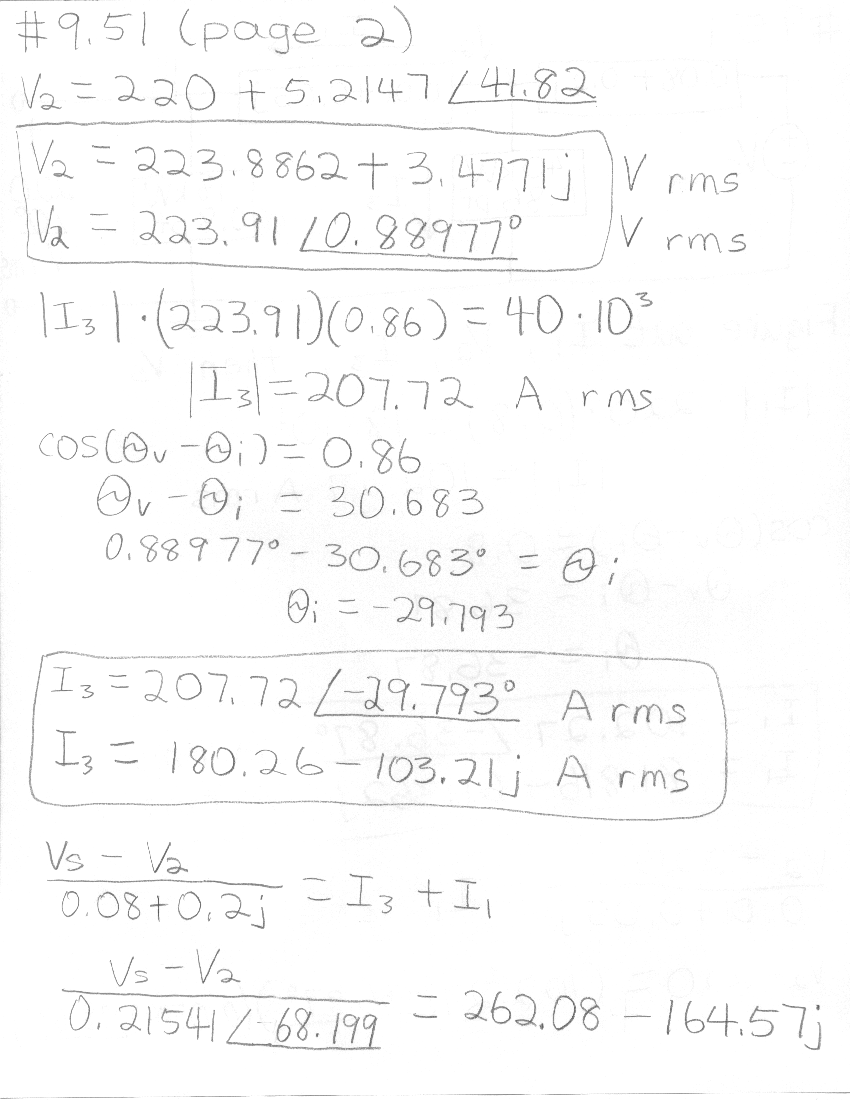 #9.51 (page 2)
V₂ = 220 + 5.2147 ∠41.82
V₂ = 223.8862 + 3.4771j V rms
V₂ = 223.91 ∠0.88977° V rms
|I₃| · (223.91)(0.86) = 40 · 10³
|I₃| = 207.72 A rms
cos(θv - θi) = 0.86
θv - θi = 30.683
0.88977° - 30.683° = θi
θi = -29.793
I₃ = 207.72 ∠-29.793° A rms
I₃ = 180.26 - 103.21j A rms
(Vs - V₂)/(0.08 + 0.2j) = I₃ + I₁
(Vs - V₂)/(0.21541 ∠68.199) = 262.08 - 164.57j